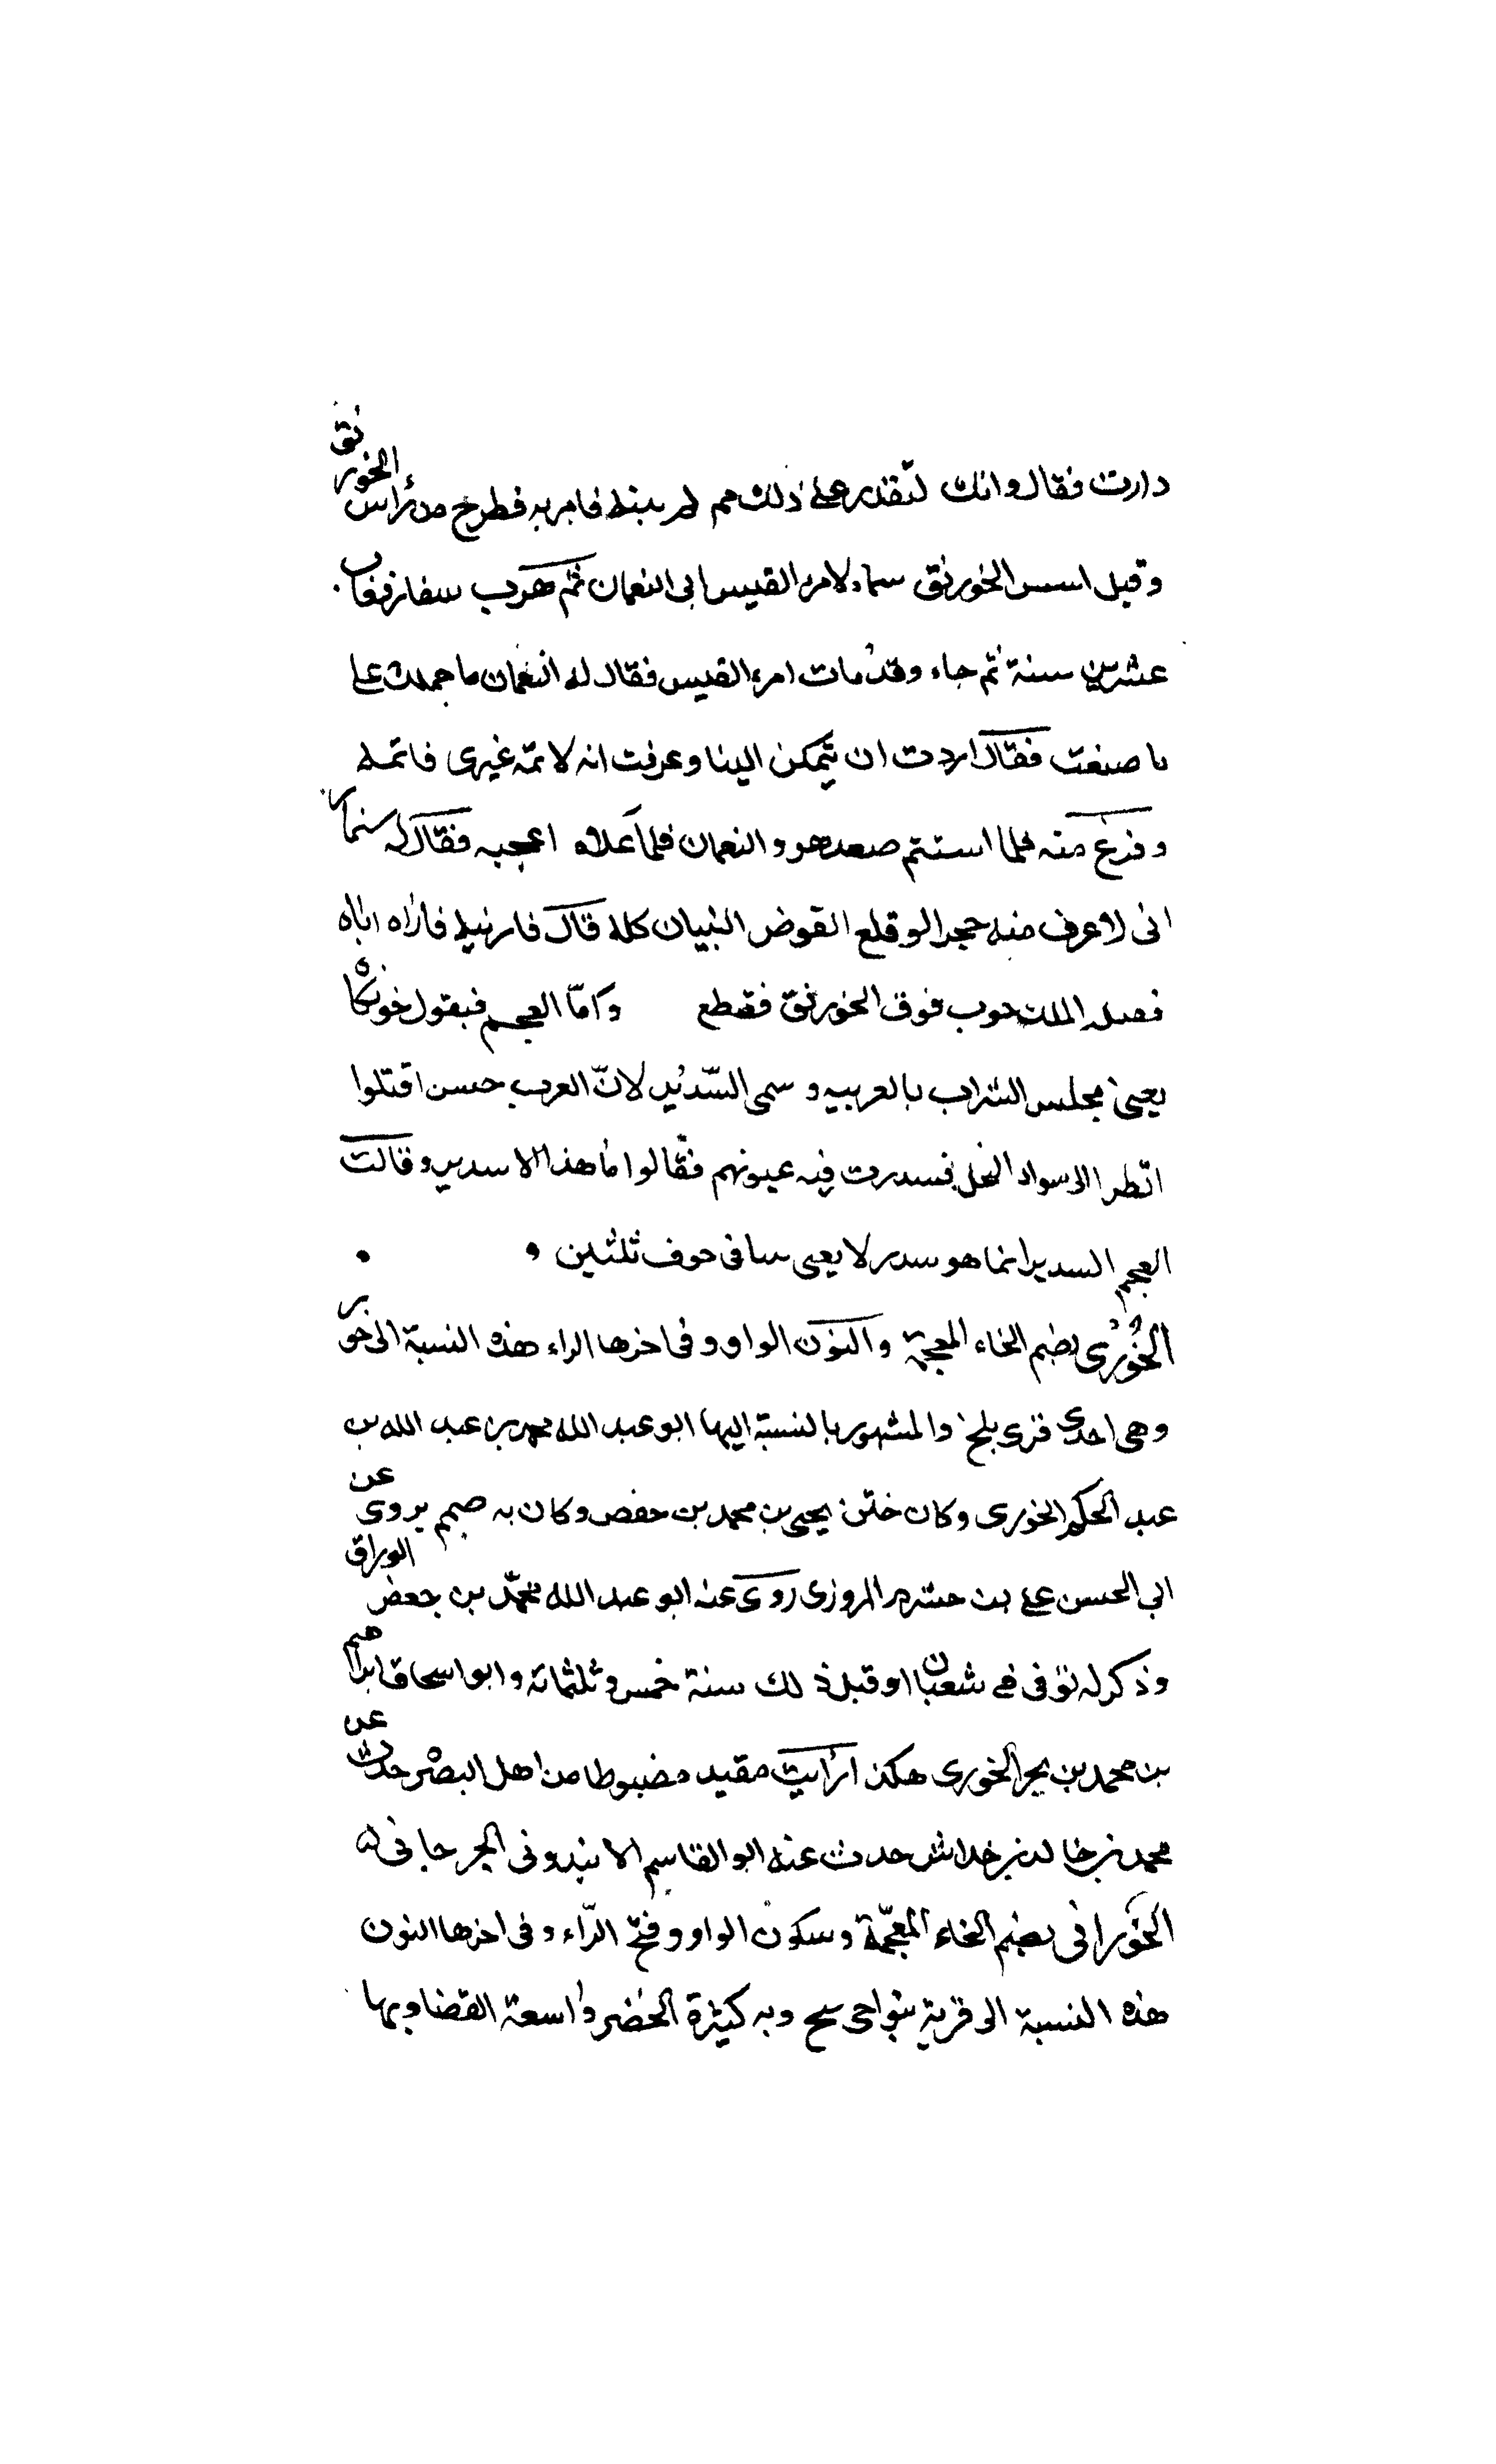 دارت فقال وانك لتقدر على ذلك مم لم يبنه فامر به فطرح من رأس الخورنق
وقيل اسس الخورنق سماء لامرء القيس ابى النعمان ثم هرب سنمار فغاب
عشرين سنة ثم جاء وقد مات امرء القيس فقال له النعمان ما حملك على
ما صنعت فقال اردت ان يتمكن البنا وعرفت انه لا يتمه غيرى فاتمه
وفرغ منه فلما استتم صعد هو والنعمان فلما علاه اعجبه فقال له سنمار
انى لاعرف منه حجرا لو قلع القوض البنيان كله قال فارنيه فاراه اياه
الملك فوق الخورنق فقطع وامّا العجم فيقول خورنكاه
يعنى مجلس الشراب بالعربيه وسمى السّدير لانّ العرب حسن اقبلوا
انظروا الى سواد النخل فسدرت فيه عيونهم فقالوا ما هذا الا سدير وقالت
العجم السدير انما هو سدر لا يعنى سا فى حوف ثلثين
الخُورى بضم الخاء المعجمة والنون الواو وفى اخرها الراء هذه النسبة الى خور
وهى احدى قرى بلخ والمشهور بالنسبة اليها ابو عبد الله محمد بن عبد الله بن
عبد الحكم الخورى وكان ختن يحيى بن محمد بن حفص وكان به صمم يروى عن
ابي الحسن على بن خشرم المروزى روى عنه ابو عبد الله محمّد بن جعفر الوراق
وذكر له توفى فى شعبان او قبل ذلك سنة خمس وثلثمائة وابو اسحاق ابراهيم
بن محمد بن بحر الخورى هكذا رأيت مقيد مضبوطا من اهل البصر حدث عن
محمد بن خالد بن خداش حدث عنه ابو القاسم الابندونى الجرجانى ه
الخورانى بضم الخاء المعجّمة وسكون الواو وفتح الرّاء وفى اخرها النون
هذه النسبة الى قرية بنواحى وبه كثيرة الخضر واسعة الفضا وبها